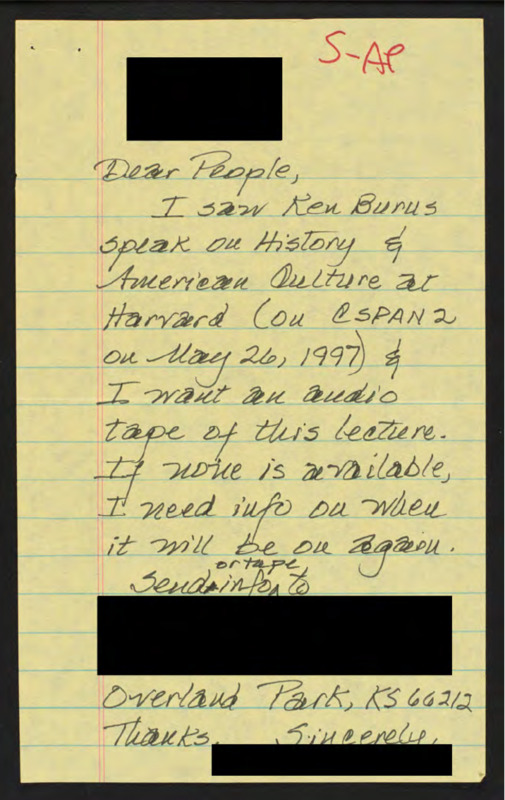 S-AP
Dear People,
I saw Ken Burns
speak on History &
American Culture at
Harvard (on CSPAN 2
on May 26, 1997) &
I want an audio
tape of this lecture.
If none is available,
I need info on when
it will be on again.
or tape
Send info, to
Overland Park, KS 66212
Thanks. Sincerely,